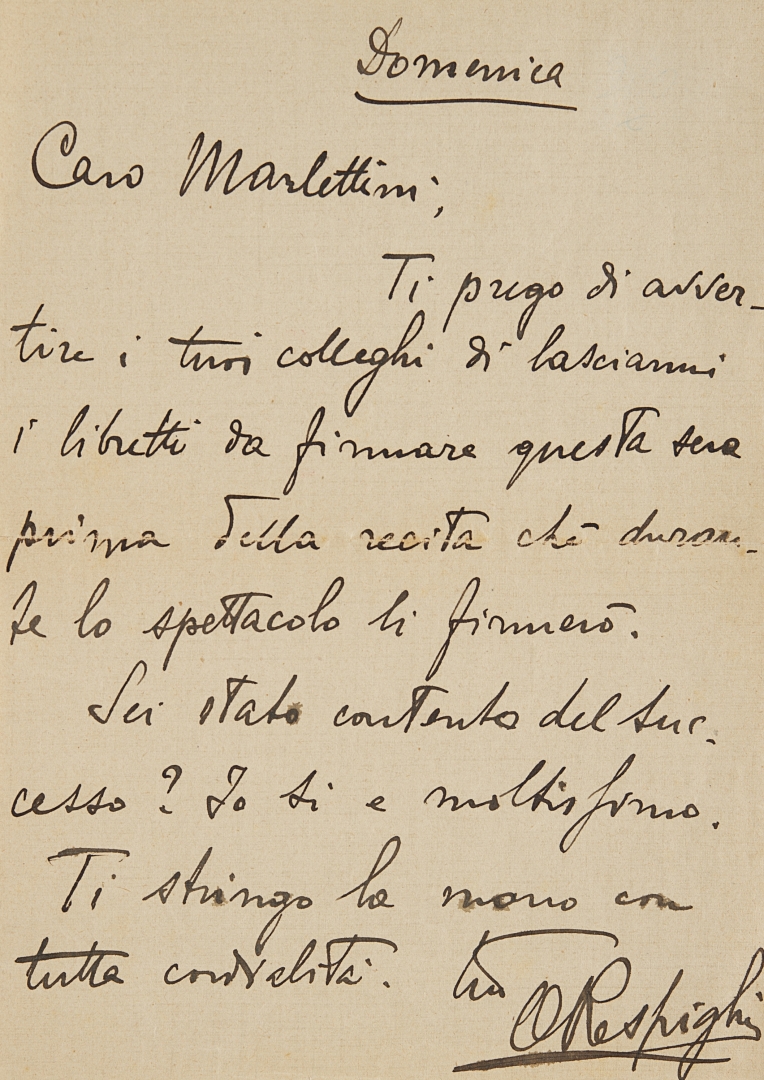 Domenica
Caro Marlettini,
Ti prego di avver-
tire i tuoi colleghi di lasciarmi
i libretti da firmare questa sera
prima della recita chè duran-
te lo spettacolo li firmerò.
Sei stato contento del suc-
cesso? Io si e moltissimo.
Ti stringo la mano con
tutta cordialità. tuo
ORespighi